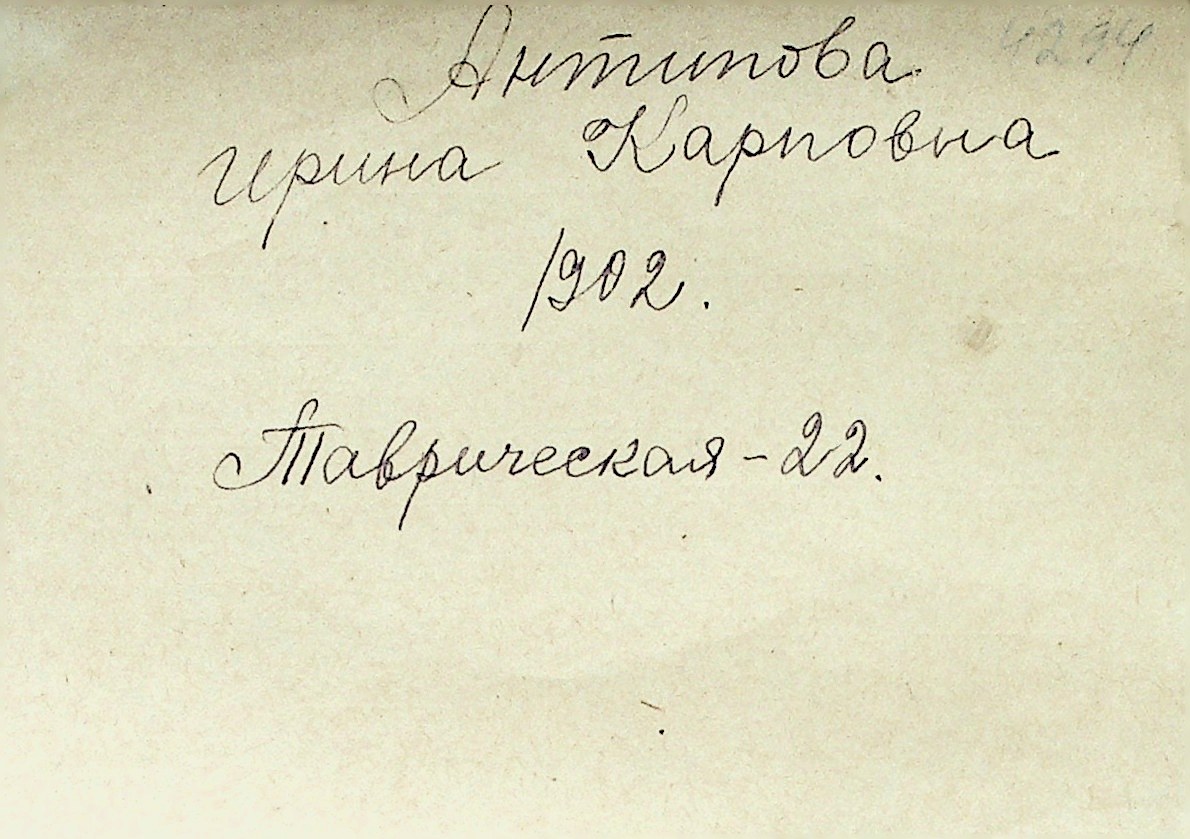 Антипова
Ирина Карповна
1902.
Таврическая - 22.